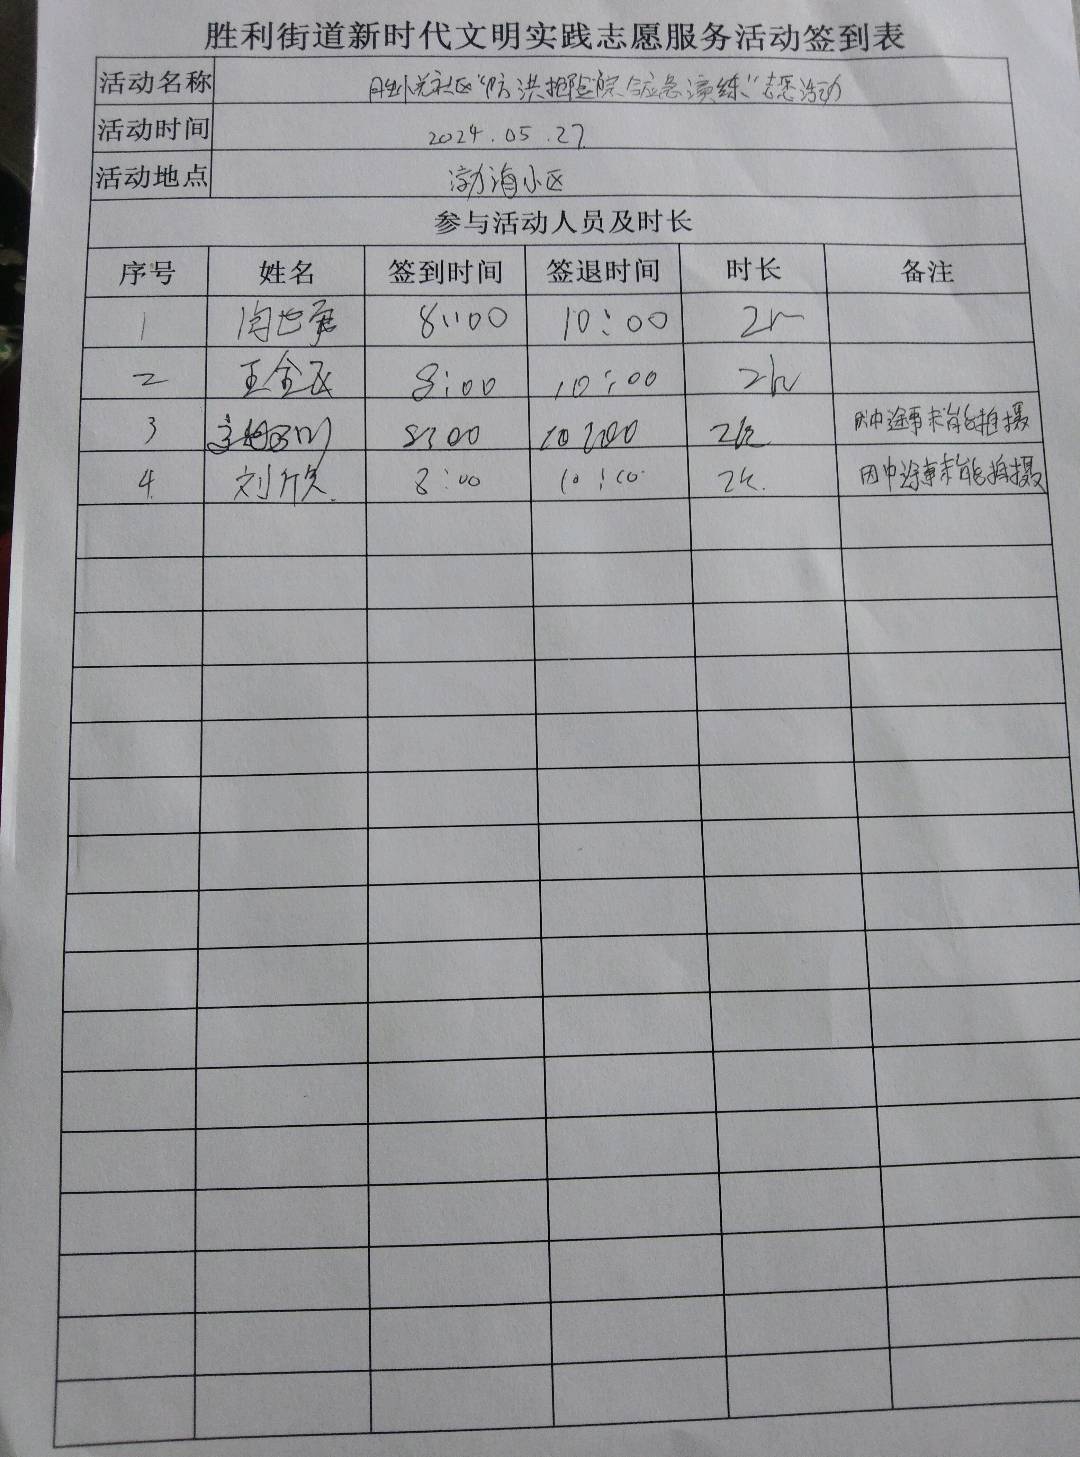 胜利街道新时代文明实践志愿服务活动签到表
活动名称 社区“防洪抢险应急演练”志愿活动
活动时间 2024.05.27
活动地点 渤海小区
参与活动人员及时长
序号 姓名 签到时间 签退时间 时长 备注
1 8:00 10:00 2h
2 王金 8:00 10:00 2h
3 8:00 10:00 2h 因中途事未能拍摄
4 刘欣 8:00 10:00 2h 因中途事未能拍摄